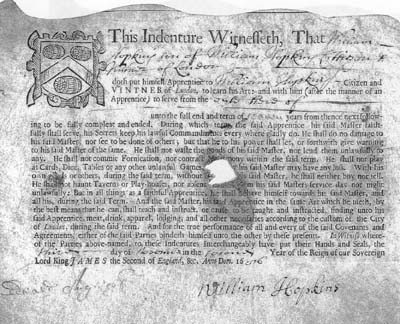 This Indenture Witnesseth, That William
Hopkins son of William Hopkins Citizen &
of London
doth put himself Apprentice to William Hopkins Citizen and
VINTNER of London, to learn his Art: and with him (after the manner of an
Apprentice) to serve from the
unto the full end and term of Seaven years from thence next follow-
ing to be fully complete and ended. During which term the said Apprentice his said Master faith-
fully shall serve, his Secrets keep his lawful Commandments every where gladly do. He shall do no damage to
his said Master, nor see to be done of others; but that he to his power shall let, or forthwith give warning
to his said Master of the same. He shall not waste the goods of his said Master, nor lend them unlawfully to
any. He shall not commit Fornication, nor contract within the said term. He shall not play
at Cards, Dice, Tables or any other unlawful Games, his said Master may have any loss. With his
own goods or others, during the said term, without his said Master, he shall neither buy nor sell.
He shall not haunt Taverns or Play-houses, nor absent from his said Masters service day nor night
unlawfully; But in all things as a faithful Apprentice, he shall behave himself towards his said Master, and
all his, during the said Term. And the said Master, his said Apprentice in the same Art which he useth, by
the best means that he can, shall teach and instruct, or cause to be taught and instructed, finding unto his
said Apprentice, meat, drink, apparel, lodging, and all other necessaries according to the custom of the City
of London, during the said term. And for the true performance of all and every of the said Covenants and
Agreements, either of the said Parties bindeth himself unto the other by these presents. In Witness where-
of the Parties above-named, to these Indentures Interchangeably have put their Hands and Seals, the
day of in the second Year of the Reign of our Sovereign
Lord King JAMES the Second of England, &c. Anno Dom. 16
William Hopkins